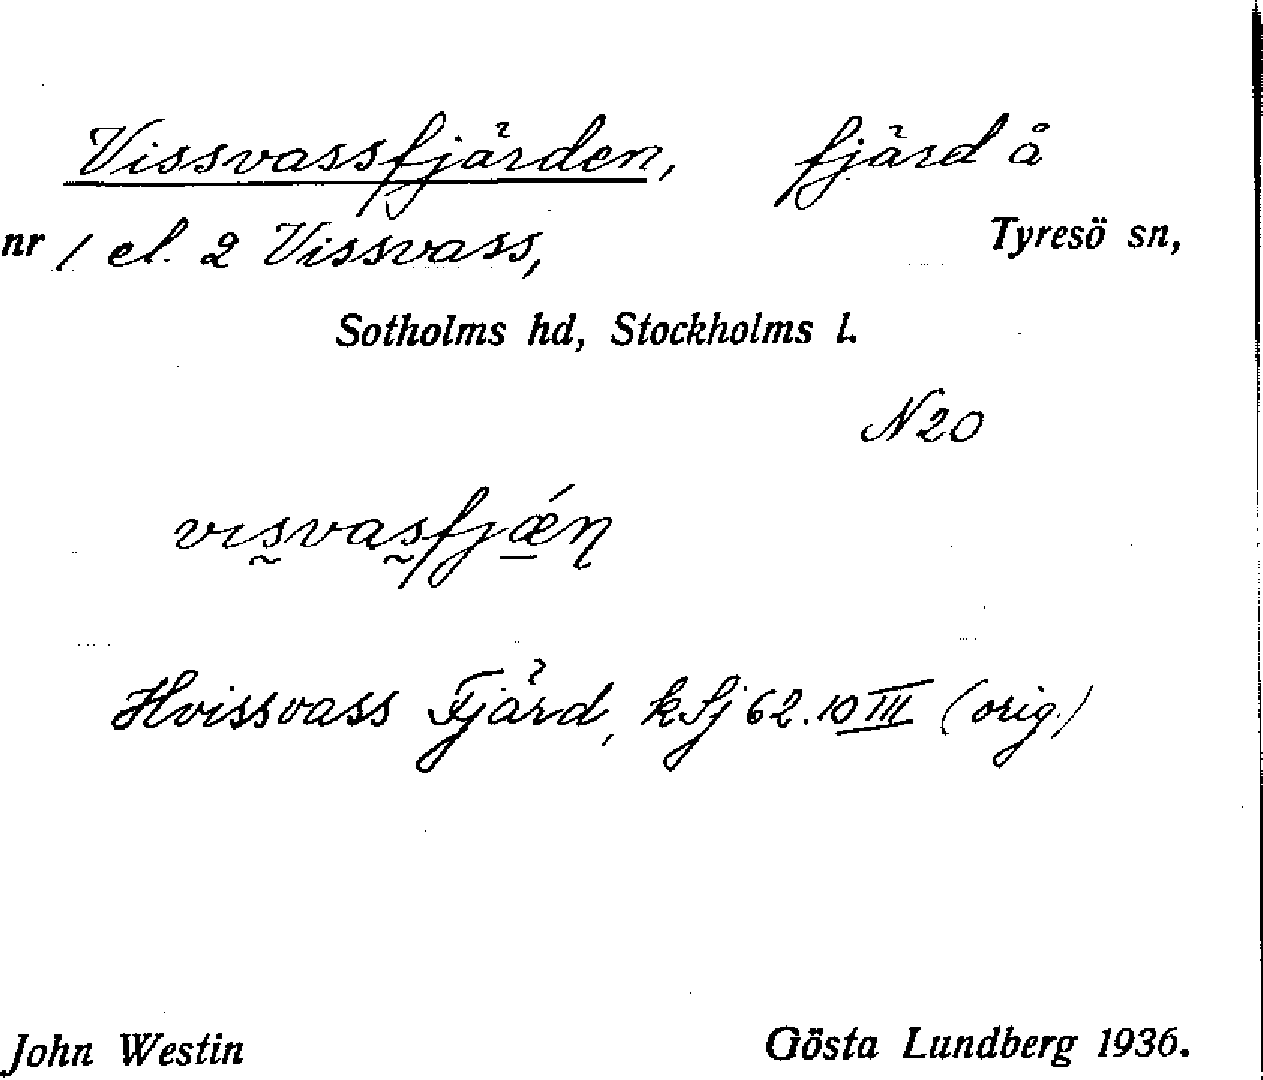 Vissvassfjärden, fjärd å
nr 1 el. 2 Vissvass, Tyresö sn,
Sotholms hd, Stockholms l.
N20
vıs̰vas̰fjǽ̱ƞ
Hvissvass Fjärd, kSj 62.10 III (orig.)
John Westin Gösta Lundberg 1936.